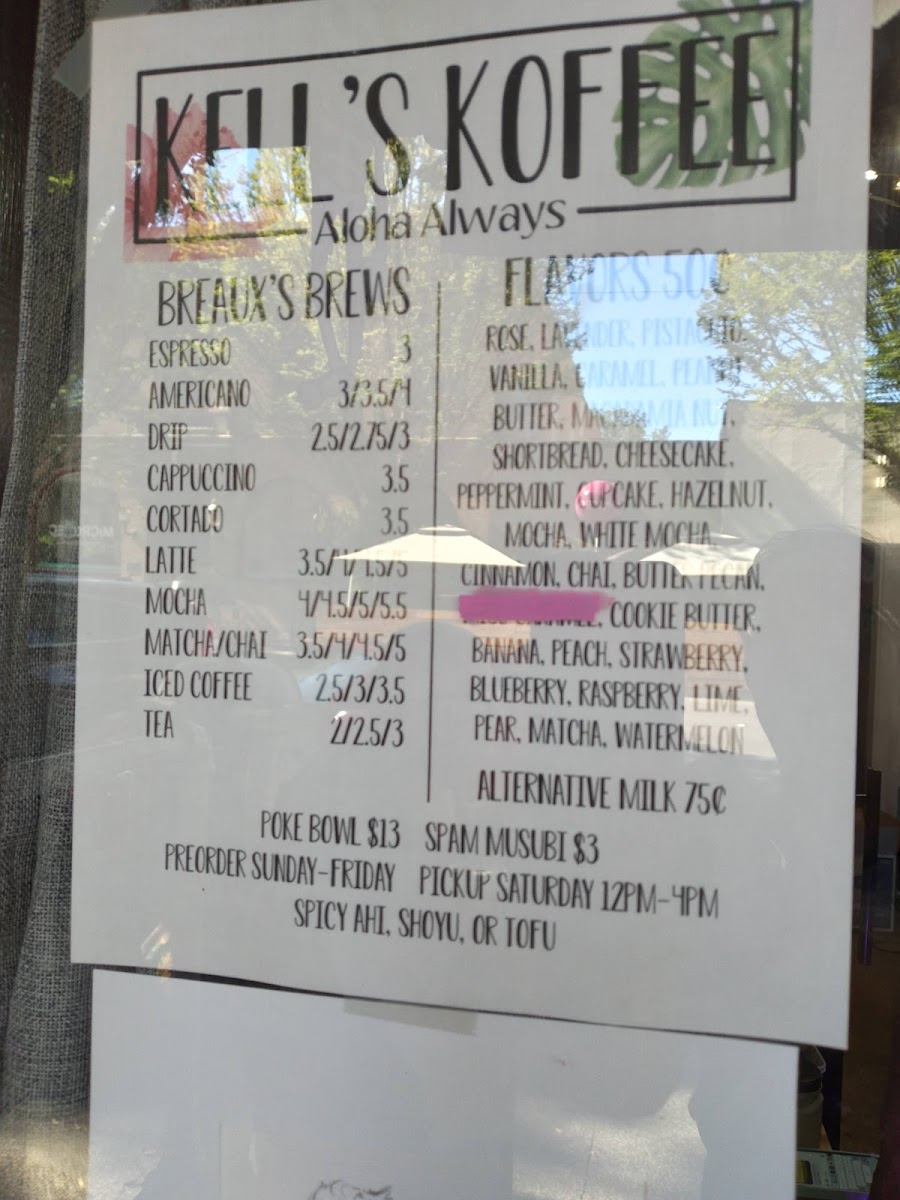 KELL'S KOFFEE
Aloha Always
BREAUX'S BREWS
ESPRESSO 3
AMERICANO 3/3.5/4
DRIP 2.5/2.75/3
CAPPUCCINO 3.5
CORTADO 3.5
LATTE 3.5/4/4.5/5
MOCHA 4/4.5/5/5.5
MATCHA/CHAI 3.5/4/4.5/5
ICED COFFEE 2.5/3/3.5
TEA 2/2.5/3
FLAVORS 50¢
ROSE, LAVENDER, PISTACHIO,
VANILLA, CARAMEL, PEANUT
BUTTER, MACADAMIA NUT,
SHORTBREAD, CHEESECAKE,
PEPPERMINT, CUPCAKE, HAZELNUT,
MOCHA, WHITE MOCHA,
CINNAMON, CHAI, BUTTER PECAN,
COOKIE BUTTER,
BANANA, PEACH, STRAWBERRY,
BLUEBERRY, RASPBERRY, LIME,
PEAR, MATCHA, WATERMELON
ALTERNATIVE MILK 75¢
POKE BOWL $13 SPAM MUSUBI $3
PREORDER SUNDAY-FRIDAY PICKUP SATURDAY 12PM-4PM
SPICY AHI, SHOYU, OR TOFU